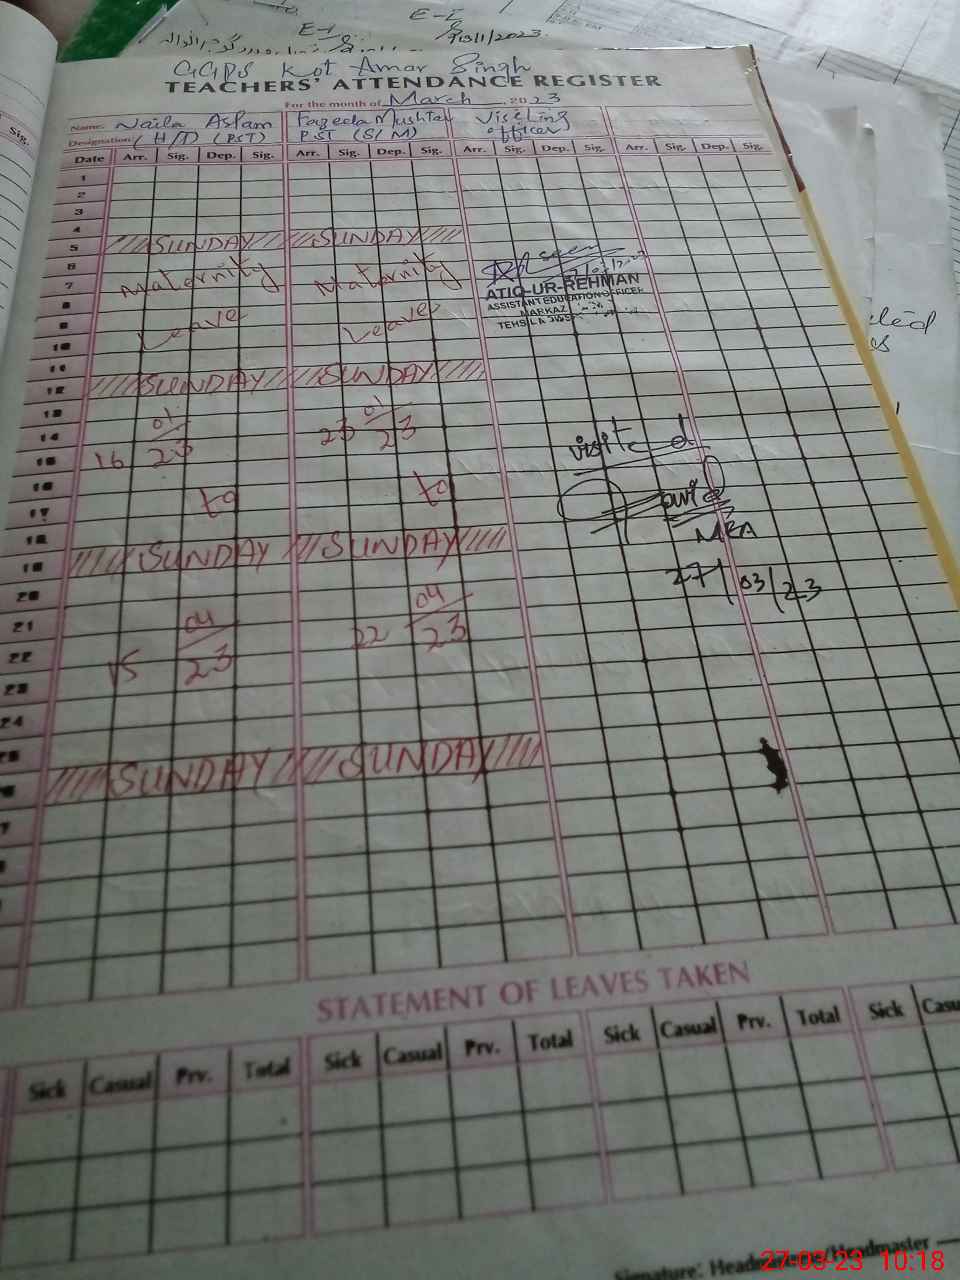 E-I E-I
13/11/2023
GGPS Kot Amar Singh
TEACHERS' ATTENDANCE REGISTER
For the month of March 2023
Name: Naila Aslam Fazeela Mushtaq Visiting
Designation (H/T) (PST) PST (S/M) officer
Sig.
Date Arr. Sig. Dep. Sig. Arr. Sig. Dep. Sig. Arr. Sig. Dep. Sig. Arr. Sig. Dep. Sig.
1
2
3
4
5 SUNDAY SUNDAY
6
7 Maternity Maternity
8
9 Leave Leave
10
11
12 SUNDAY SUNDAY
13
14 01 01
15 16 23 23 23
16
17 to to
18
19 SUNDAY SUNDAY
20
21 04 04
22 15 23 22 23
23
24
25
SUNDAY SUNDAY
seen
ATIQ-UR-REHMAN
ASSISTANT EDUCATION OFFICER
MARKAZ
TEHSIL
visited
MEA
27/03/23
STATEMENT OF LEAVES TAKEN
Sick Casual Prv. Total Sick Casual Prv. Total Sick Casual Prv. Total Sick Casu
Signature: Headmaster
27-03-23 10:18